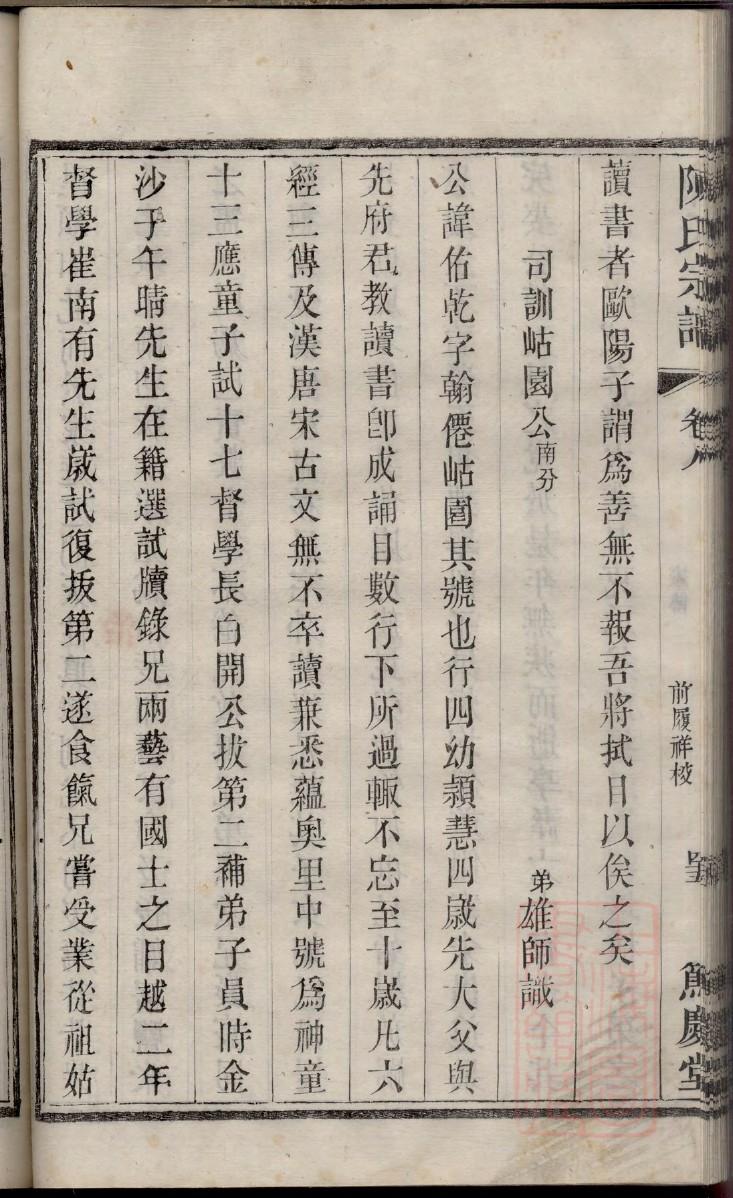 陳氏宗譜 卷八 前履祥校 篤慶堂
讀書者歐陽子謂爲善無不報吾將拭目以俟之矣
司訓岵園公南分 弟雄師識
公諱佑乾字翰僊岵園其號也行四幼頴慧四歲先大父與
先府君教讀書卽成誦目數行下所過輙不忘至十歲凡六
經三傳及漢唐宋古文無不卒讀兼悉蘊奧里中號爲神童
十三應童子試十七督學長白開公拔第二補弟子員時金
沙于午晴先生在籍選試牘錄兄兩藝有國士之目越二年
督學崔南有先生歲試復拔第二遂食餼兄嘗受業從祖姑